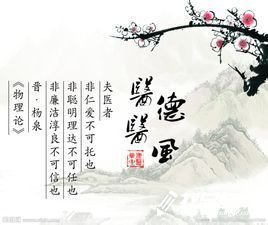 醫德
醫風
夫医者
非仁爱不可托也
非聪明理达不可任也
非廉洁淳良不可信也
晋·杨泉
《物理论》